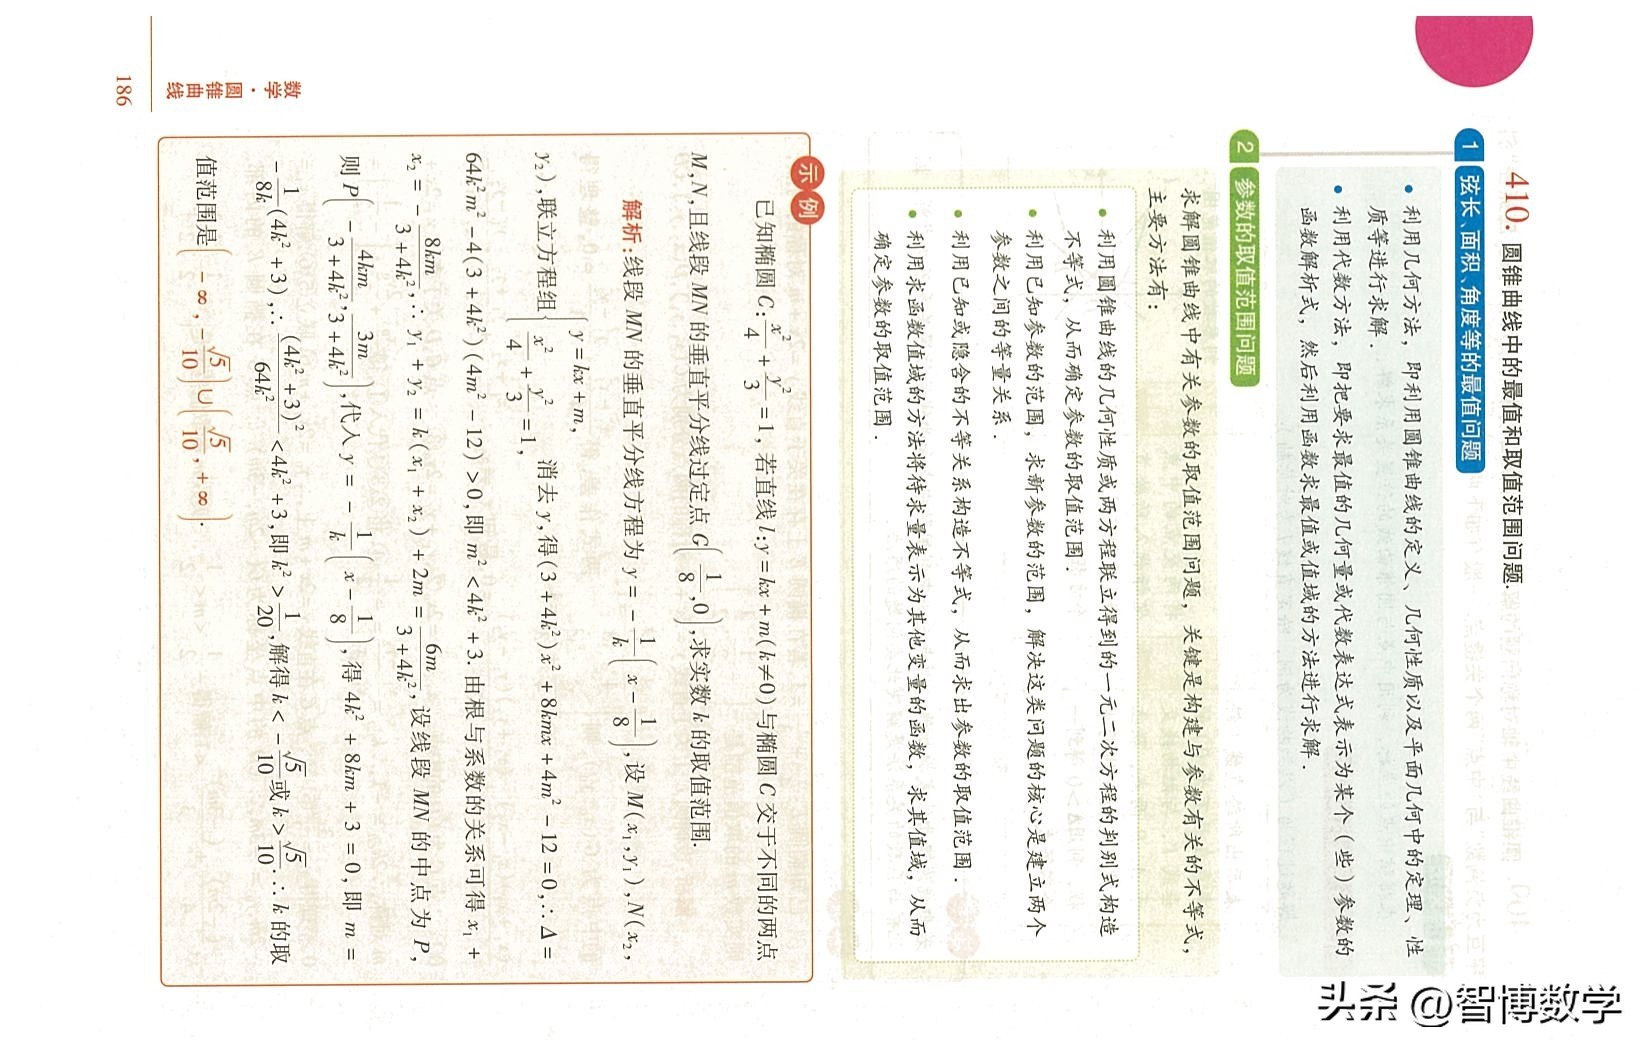 410. 圆锥曲线中的最值和取值范围问题.
1 弦长、面积、角度等的最值问题
• 利用几何方法，即利用圆锥曲线的定义、几何性质以及平面几何中的定理、性
质等进行求解.
• 利用代数方法，即把要求最值的几何量或代数表达式表示为某个（些）参数的
函数解析式，然后利用函数求最值或值域的方法进行求解.
2 参数的取值范围问题
求解圆锥曲线中有关参数的取值范围问题，关键是构建与参数有关的不等式，
主要方法有：
• 利用圆锥曲线的几何性质或两方程联立得到的一元二次方程的判别式构造
不等式，从而确定参数的取值范围.
• 利用已知参数的范围，求新参数的范围，解决这类问题的核心是建立两个
参数之间的等量关系.
• 利用已知或隐含的不等关系构造不等式，从而求出参数的取值范围.
• 利用求函数值域的方法将待求量表示为其他变量的函数，求其值域，从而
确定参数的取值范围.
示例
已知椭圆 C: x²/4 + y²/3 = 1, 若直线 l: y = kx + m (k ≠ 0) 与椭圆 C 交于不同的两点
M, N, 且线段 MN 的垂直平分线过定点 G(1/8, 0), 求实数 k 的取值范围.
解析: 线段 MN 的垂直平分线方程为 y = -1/k (x - 1/8), 设 M(x₁, y₁), N(x₂,
y₂), 联立方程组 { y = kx + m, x²/4 + y²/3 = 1, 消去 y, 得 (3 + 4k²)x² + 8kmx + 4m² - 12 = 0, ∴ Δ =
64k²m² - 4(3 + 4k²)(4m² - 12) > 0, 即 m² < 4k² + 3. 由根与系数的关系可得 x₁ +
x₂ = -8km/(3 + 4k²), ∴ y₁ + y₂ = k(x₁ + x₂) + 2m = 6m/(3 + 4k²), 设线段 MN 的中点为 P,
则 P(-4km/(3 + 4k²), 3m/(3 + 4k²)), 代入 y = -1/k (x - 1/8), 得 4k² + 8km + 3 = 0, 即 m =
-1/8k (4k² + 3), ∴ (4k² + 3)²/64k² < 4k² + 3, 即 k² > 1/20, 解得 k < -√5/10 或 k > √5/10. ∴ k 的取
值范围是 (-∞, -√5/10) ∪ (√5/10, +∞).
数学·圆锥曲线
186
头条 @智博数学